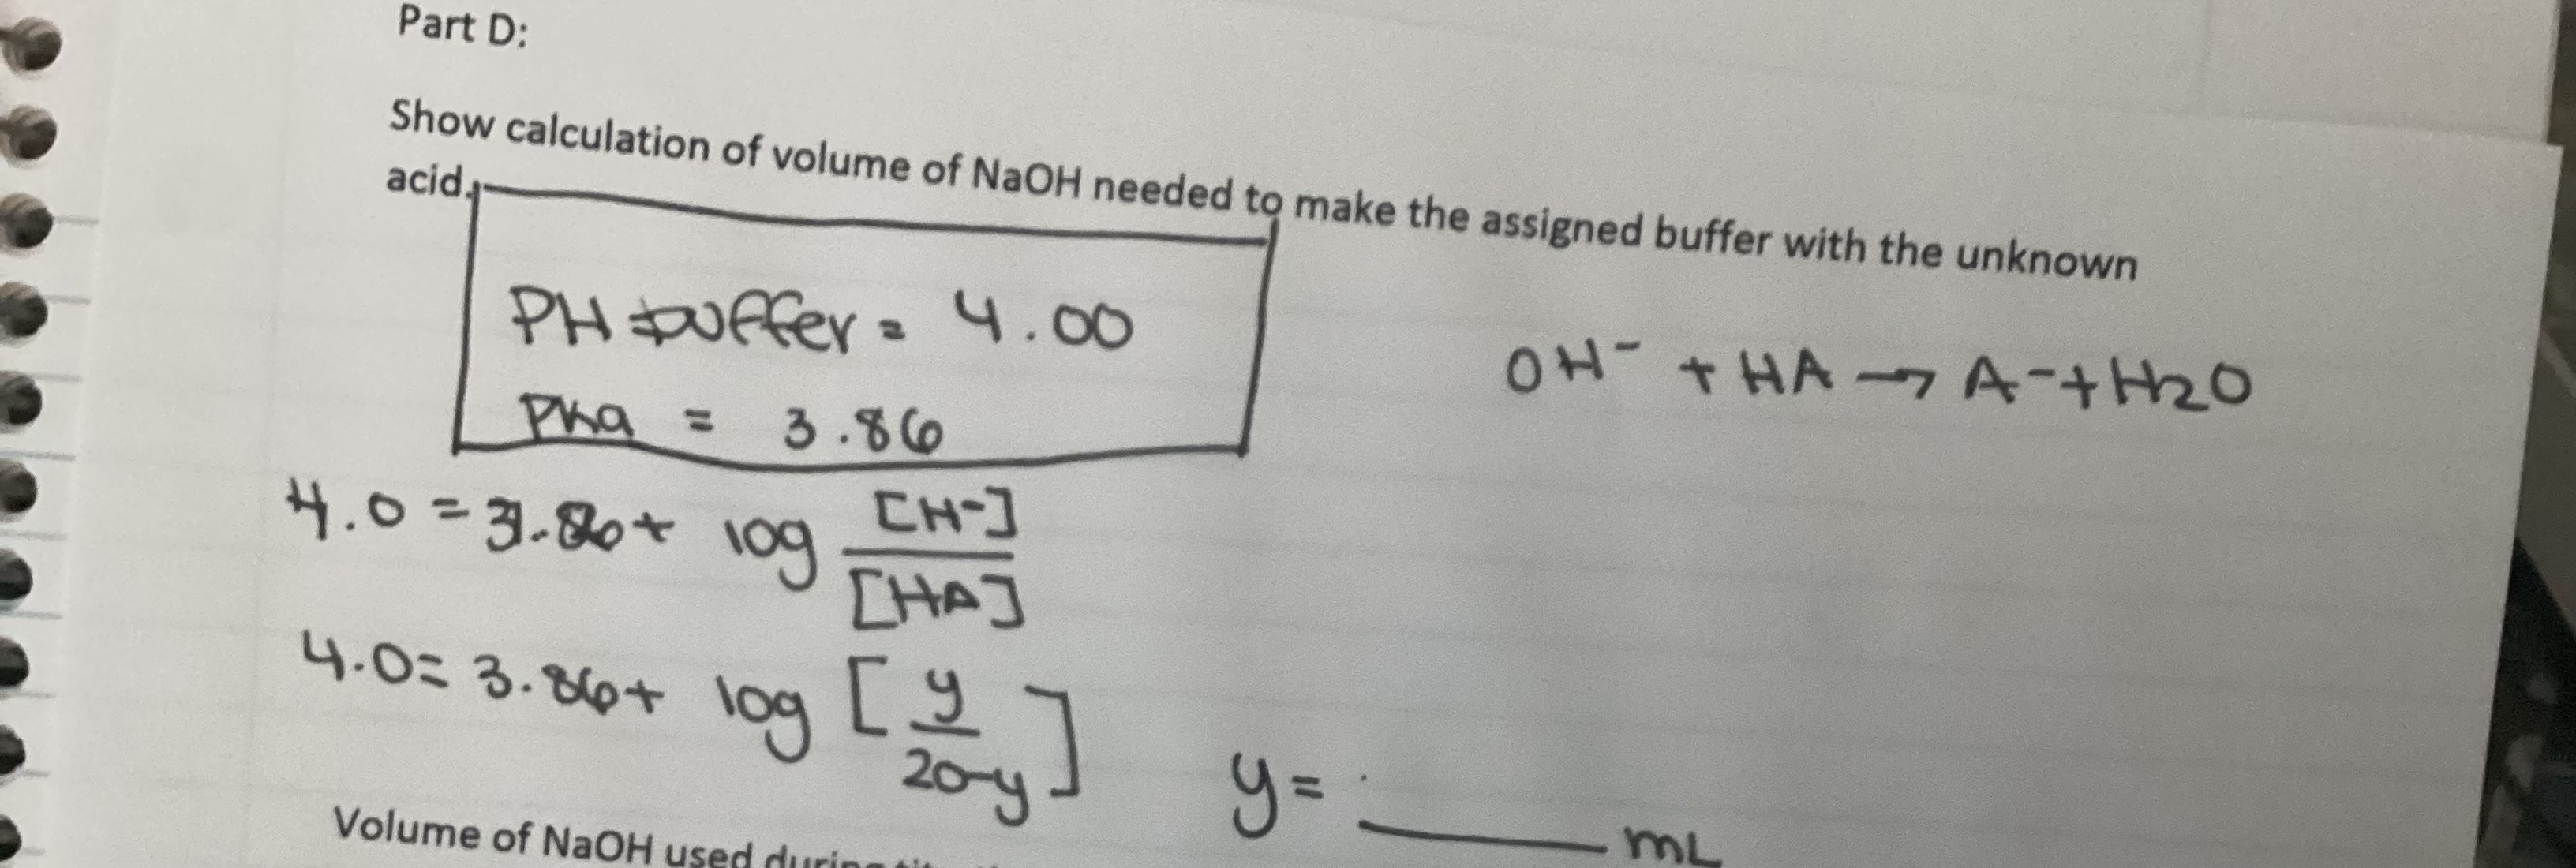 Part D:
Show calculation of volume of NaOH needed to make the assigned buffer with the unknown
acid.
PH buffer = 4.00
PKa = 3.86
OH⁻ + HA → A⁻ + H2O
4.0 = 3.86 + log [H⁻]/[HA]
4.0 = 3.86 + log [y/20-y]
y = ____ mL
Volume of NaOH used during